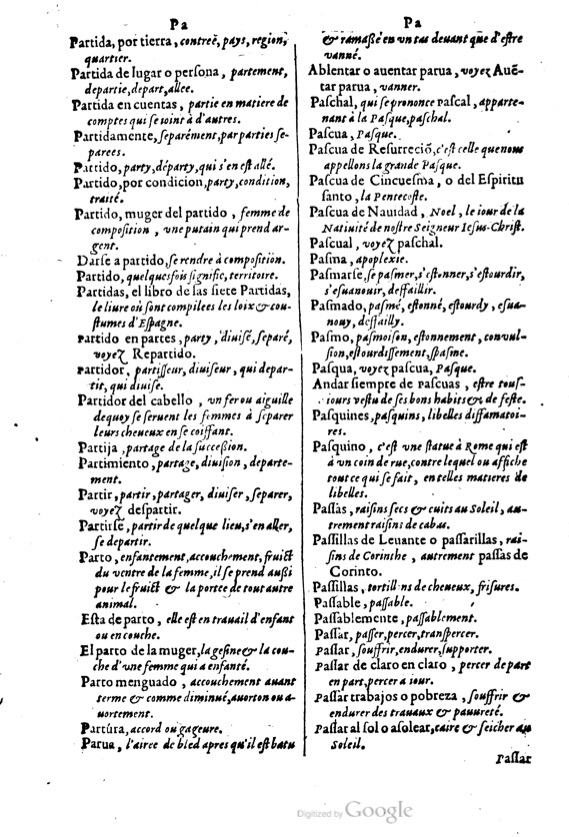 Pa
Partida, por tierra, contreé, pays, region,
quartier.
Partida de lugar o persona, partement,
departie, depart, allee.
Partida en cuentas, partie en matiere de
comptes qui se joint à d'autres.
Partidamente, separément, par parties se-
parees.
Partido, party, départy, qui s'en est allé.
Partido, por condicion, party, condition,
traité.
Partido, muger del partido, femme de
composition, vne putain qui prend ar-
gent.
Darse a partido, se rendre à composition.
Partido, quelquesfois signifie, territoire.
Partidas, el libro de las siete Partidas,
le liure où sont compilees les loix & cou-
stumes d'Espagne.
Partido en partes, party, diuisé, separé,
voyez Repartido.
Partidor, partisseur, diuiseur, qui depar-
tit, qui diuise.
Partidor del cabello, vn fer ou aiguille
dequoy se seruent les femmes à separer
leurs cheueux en se coiffant.
Partija, partage de la succession.
Partimiento, partage, diuision, departe-
ment.
Partir, partir, partager, diuiser, separer,
voyez despartir.
Partirse, partir de quelque lieu, s'en aller,
se departir.
Parto, enfantement, accouchement, fruict
du ventre de la femme, il se prend aussi
pour le fruict & la portee de tout autre
animal.
Esta de parto, elle est en trauail d'enfant
ou en couche.
El parto de la muger, la gesine & la cou-
che d'vne femme qui a enfanté.
Parto menguado, accouchement auant
terme & comme diminué, auorton ou a-
uortement.
Partúra, accord ou gageure.
Parua, l'airee de bled apres qu'il est batu
Pa
& ramaßé en vn tas deuant que d'estre
vanné.
Ablentar o auentar parua, voyez Auē-
tar parua, vanner.
Paschal, qui se prononce Pascal, apparte-
nant à la Pasque, paschal.
Pascua, Pasque.
Pascua de Resurreciõ, c'est celle que nous
appellons la grande Pasque.
Pascua de Cincuesma, o del Espiritu
santo, la Pentecoste.
Pascua de Nauidad, Noel, le iour de la
Natiuité de nostre Seigneur Iesus-Christ.
Pascual, voyez paschal.
Pasma, apoplexie.
Pasmarse, se pasmer, s'estonner, s'estourdir,
s'esuanouir, deffaillir.
Pasmado, pasmé, estonné, estourdy, esua-
nouy, deffailly.
Pasmo, pasmoison, estonnement, conuul-
sion, estourdissement, spasme.
Pasqua, voyez pascua, Pasque.
Andar siempre de pascuas, estre tous-
iours vestu de ses bons habits & de feste.
Pasquines, pasquins, libelles diffamatoi-
res.
Pasquino, c'est vne statuë à Rome qui est
à vn coin de rue, contre lequel on affiche
tout ce qui se fait, en telles matieres de
libelles.
Passas, raisins secs & cuits au Soleil, au-
trement raisins de cabas.
Passillas de Leuante o passarillas, rai-
sins de Corinthe, autrement passas de
Corinto.
Passillas, tortillons de cheueux, frisures.
Passable, passable.
Passablemente, passablement.
Passar, passer, percer, transpercer.
Passar, souffrir, endurer, supporter.
Passar de claro en claro, percer de part
en part, percer a iour.
Passar trabajos o pobreza, souffrir &
endurer des trauaux & pauureté.
Passar al sol o asolear, cuire & seicher au
Soleil.
Passar
Digitized by Google